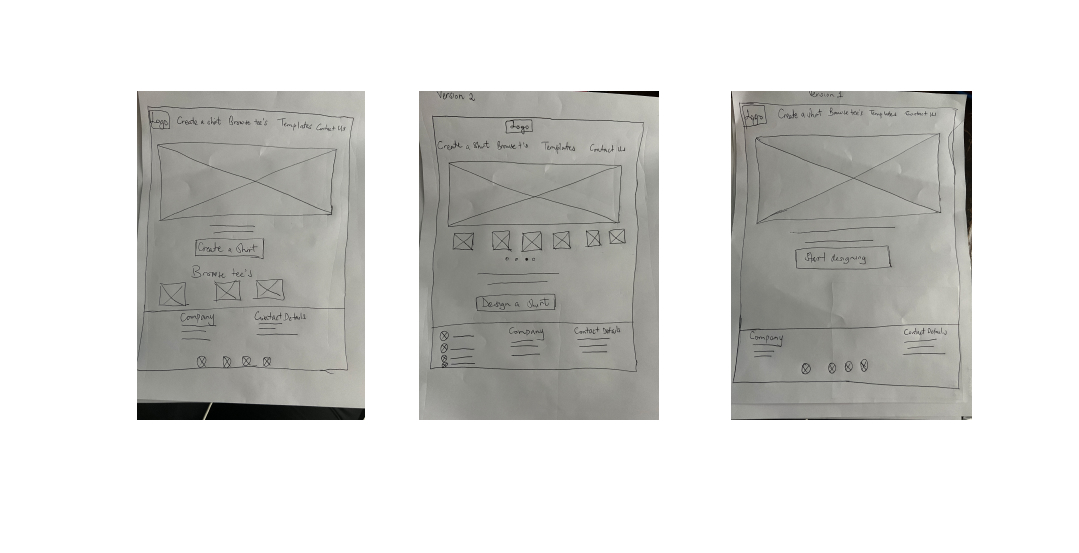 Logo Create a shirt Browse tee's Templates Contact Us
Create a Shirt
Browse tee's
Company Contact Details
Version 2
Logo
Create a Shirt Browse t's Templates Contact Us
Design a Shirt
Company Contact Details
Version 1
Logo Create a shirt Browse tee's Templates Contact Us
Start designing
Company Contact Details